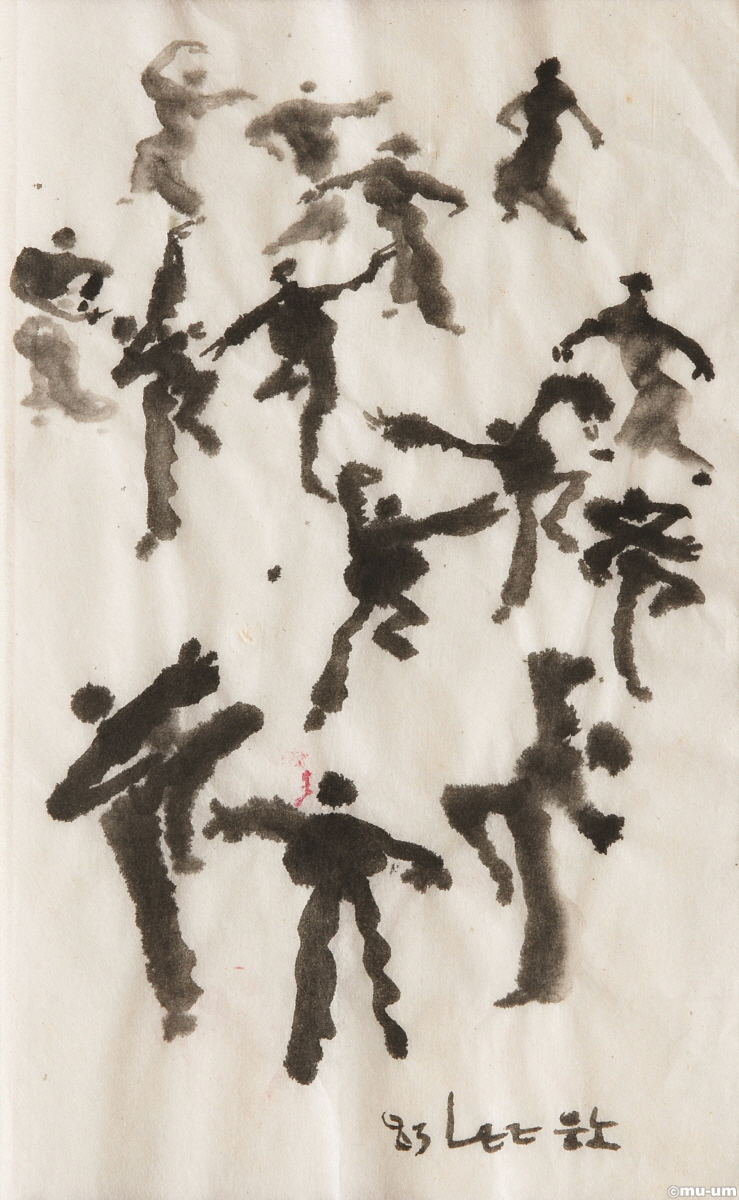 83 LEE 응노
©mu-um